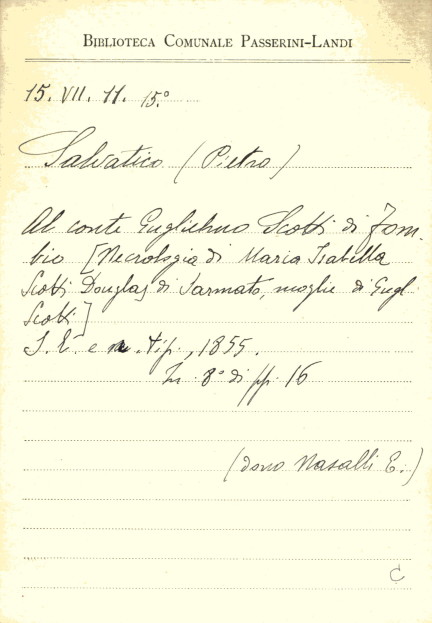 BIBLIOTECA COMUNALE PASSERINI-LANDI
15. VII. 11. 15.°
Salvatico (Pietro)
Al conte Guglielmo Scotti di Fom-
bio [Necrologia di Maria Isabella
Scotti Douglas di Sarmato, moglie di Gugl.
Scotti]
S. l. e n. tip., 1855.
In 8° di pp. 16
(dono Nasalli E.)
C